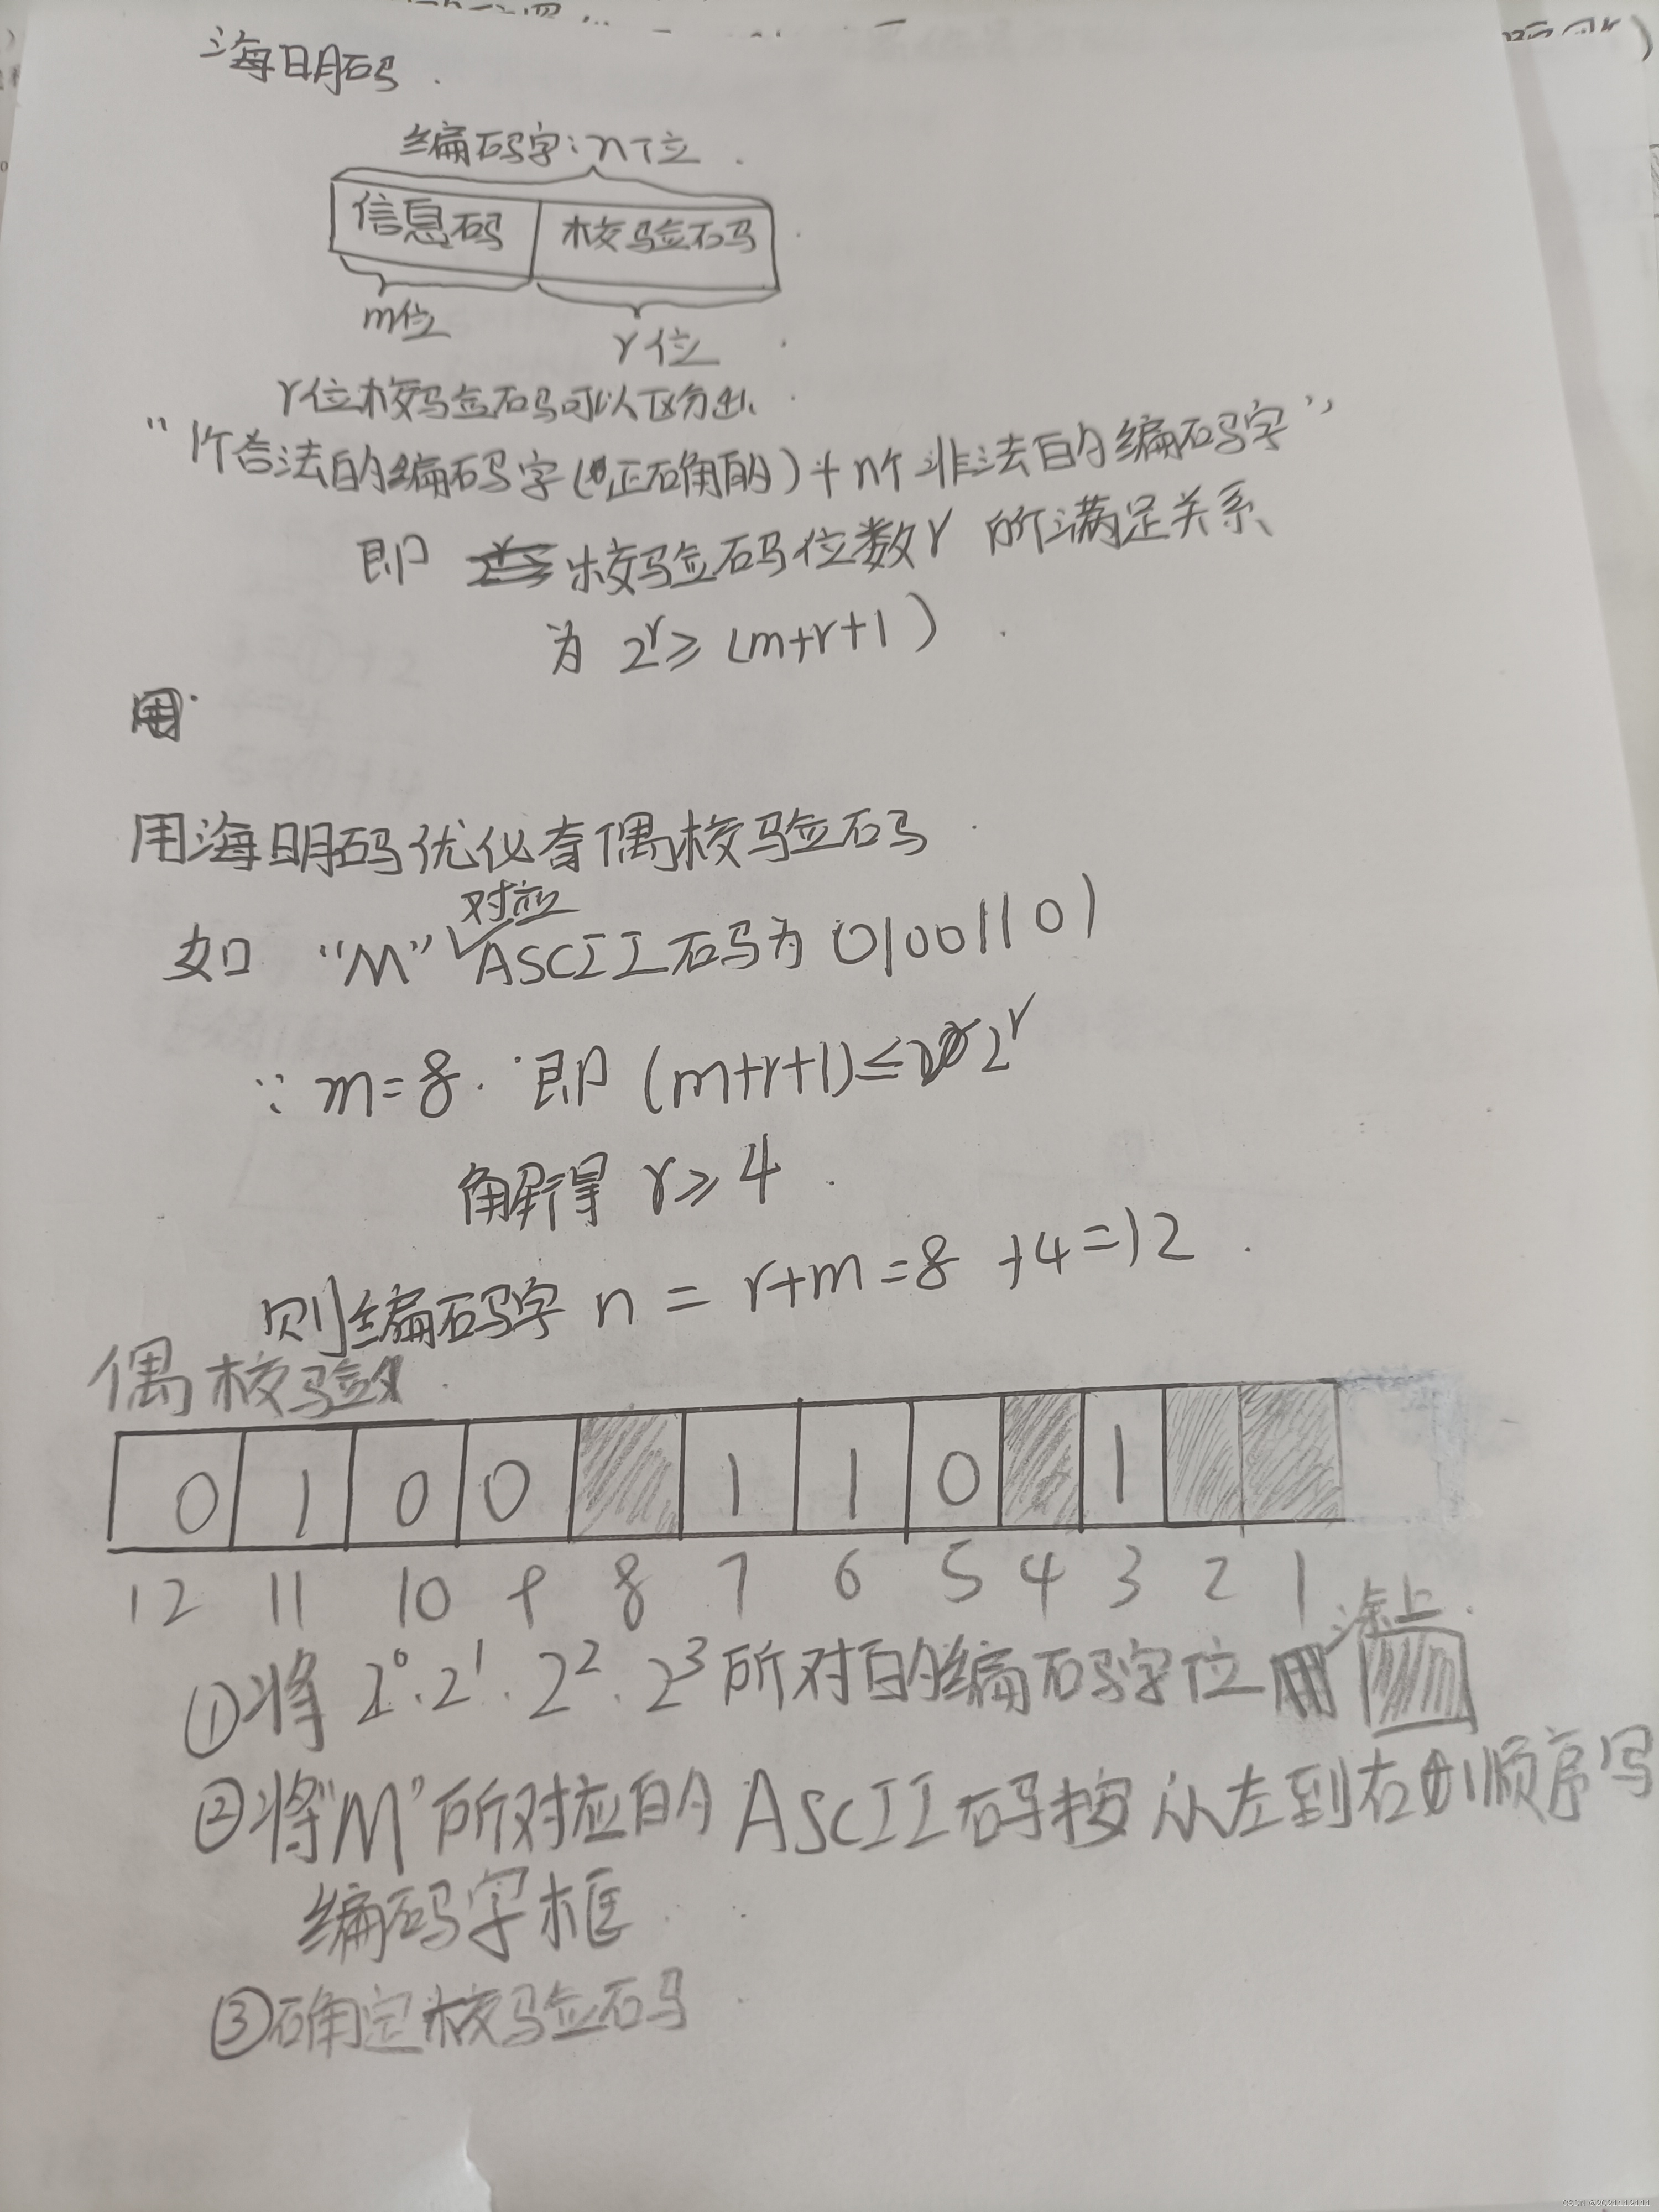 海明码
编码字：n位
信息码 校验码
m位
r位
r位校验码可以区分出
“1个合法的编码字(正确的)+n个非法的编码字”
即 校验码位数r 所满足关系
为 2^r≥(m+r+1)
用
用海明码优化奇偶校验码
对应
如 “M” ASCII码为 01001101
∵ m=8. 即 (m+r+1)≤2^r
解得 r≥4
则编码字 n = r+m=8+4=12
偶校验
0 1 0 0 1 1 0 1
12 11 10 9 8 7 6 5 4 3 2 1
涂上
①将 2^0.2^1.2^2.2^3所对的编码字位
②将“M”所对应的ASCII码按从左到右的顺序写
编码字框
③确定校验码
CSDN @2021112111